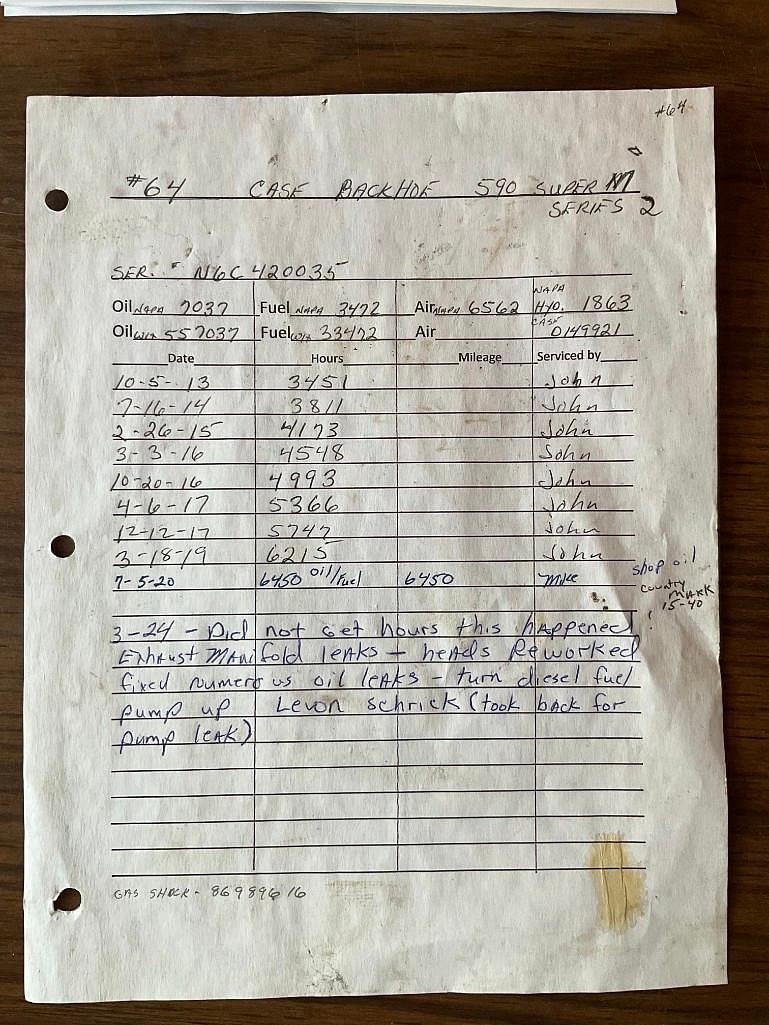 #64
#64 CASE BACKHOE 590 SUPER M
SERIES 2
SER. N6C420035
NAPA
Oil NAPA 7037 Fuel NAPA 3472 Air NAPA 6562 HYD. 1863
CASE
Oil WIX 557037 Fuel WIX 33472 Air 0149921
Date Hours Mileage Serviced by
10-5-13 3451 John
7-16-14 3811 John
2-26-15 4173 John
3-3-16 4548 John
10-20-16 4993 John
4-6-17 5366 John
12-12-17 5747 John
3-18-19 6215 John
7-5-20 6450 oil/fuel 6450 Mike shop oil
county
MARK
15-40
3-24 - Did not get hours this happened
Exhaust Manifold leaks - heads Reworked
fixed numerous oil leaks - turn diesel fuel
pump up Levon Schrick (took back for
pump leak)
GAS SHOCK - 86989616